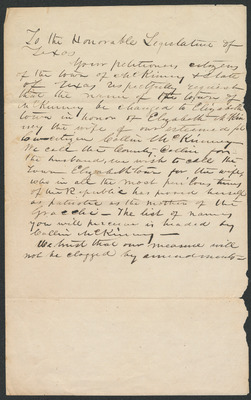 To the Honorable Legislature of
Texas
Your petitioners citizens
of the town of McKinney & State
of Texas respectfully request
that the name of the town of
McKinney be changed to Elizabeth
town in honor of Elizabeth McKin
ney the wife of our esteemed
citizen Collin McKinney
We call the County Collin for
the husband, we wish to call the
Town Elizabethtown for the wife,
who in all the most perilous times
of the Republic has proved herself
as patriotic as the mother of the
Gracchi – The list of names
you will perceive is headed by
Collin McKinney –
We trust that our measure will
not be clogged by amendments –